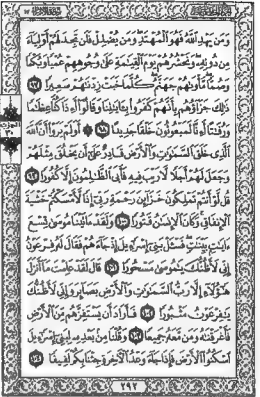 وَمَن يَهْدِ ٱللَّهُ فَهُوَ ٱلْمُهْتَدِ وَمَن يُضْلِلْ فَلَن تَجِدَ لَهُمْ أَوْلِيَآءَ
مِن دُونِهِۦ وَنَحْشُرُهُمْ يَوْمَ ٱلْقِيَٰمَةِ عَلَىٰ وُجُوهِهِمْ عُمْيًا وَبُكْمًا
وَصُمًّا مَّأْوَىٰهُمْ جَهَنَّمُ كُلَّمَا خَبَتْ زِدْنَٰهُمْ سَعِيرًا ٩٧
ذَٰلِكَ جَزَآؤُهُم بِأَنَّهُمْ كَفَرُوا۟ بِـَٔايَٰتِنَا وَقَالُوٓا۟ أَءِذَا كُنَّا عِظَٰمًا
وَرُفَٰتًا أَءِنَّا لَمَبْعُوثُونَ خَلْقًا جَدِيدًا ٩٨ ۞ أَوَلَمْ يَرَوْا۟ أَنَّ ٱللَّهَ
ٱلَّذِى خَلَقَ ٱلسَّمَٰوَٰتِ وَٱلْأَرْضَ قَادِرٌ عَلَىٰٓ أَن يَخْلُقَ مِثْلَهُمْ
وَجَعَلَ لَهُمْ أَجَلًا لَّا رَيْبَ فِيهِ فَأَبَى ٱلظَّٰلِمُونَ إِلَّا كُفُورًا ٩٩
قُل لَّوْ أَنتُمْ تَمْلِكُونَ خَزَآئِنَ رَحْمَةِ رَبِّىٓ إِذًا لَّأَمْسَكْتُمْ خَشْيَةَ
ٱلْإِنفَاقِ وَكَانَ ٱلْإِنسَٰنُ قَتُورًا ١٠٠ وَلَقَدْ ءَاتَيْنَا مُوسَىٰ تِسْعَ
ءَايَٰتٍۭ بَيِّنَٰتٍ فَسْـَٔلْ بَنِىٓ إِسْرَٰٓءِيلَ إِذْ جَآءَهُمْ فَقَالَ لَهُۥ فِرْعَوْنُ
إِنِّى لَأَظُنُّكَ يَٰمُوسَىٰ مَسْحُورًا ١٠١ قَالَ لَقَدْ عَلِمْتَ مَآ أَنزَلَ
هَٰٓؤُلَآءِ إِلَّا رَبُّ ٱلسَّمَٰوَٰتِ وَٱلْأَرْضِ بَصَآئِرَ وَإِنِّى لَأَظُنُّكَ
يَٰفِرْعَوْنُ مَثْبُورًا ١٠٢ فَأَرَادَ أَن يَسْتَفِزَّهُم مِّنَ ٱلْأَرْضِ
فَأَغْرَقْنَٰهُ وَمَن مَّعَهُۥ جَمِيعًا ١٠٣ وَقُلْنَا مِنۢ بَعْدِهِۦ لِبَنِىٓ إِسْرَٰٓءِيلَ
ٱسْكُنُوا۟ ٱلْأَرْضَ فَإِذَا جَآءَ وَعْدُ ٱلْءَاخِرَةِ جِئْنَا بِكُمْ لَفِيفًا ١٠٤
٢٩٢
الحزب
٣٠